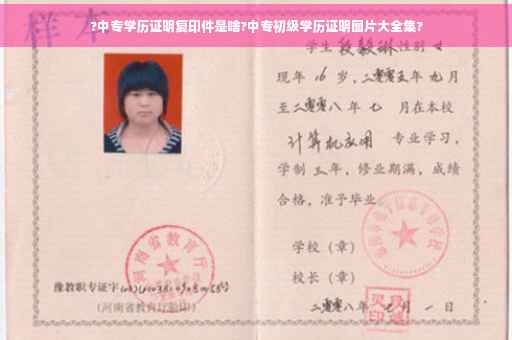 ?中专学历证明复印件是啥?中专初级学历证明图片大全集?
样本
学生 段毅琳 性别 女
现年 16 岁，二零零五年 九月
至二零零八年 七 月在本校
计算机应用 专业学习，
学制 三年，修业期满，成绩
合格，准予毕业
学校（章）
校长（章）
二零零八年 月 一 日
河南省教育厅
豫教职专证字
（河南省教育厅验印）